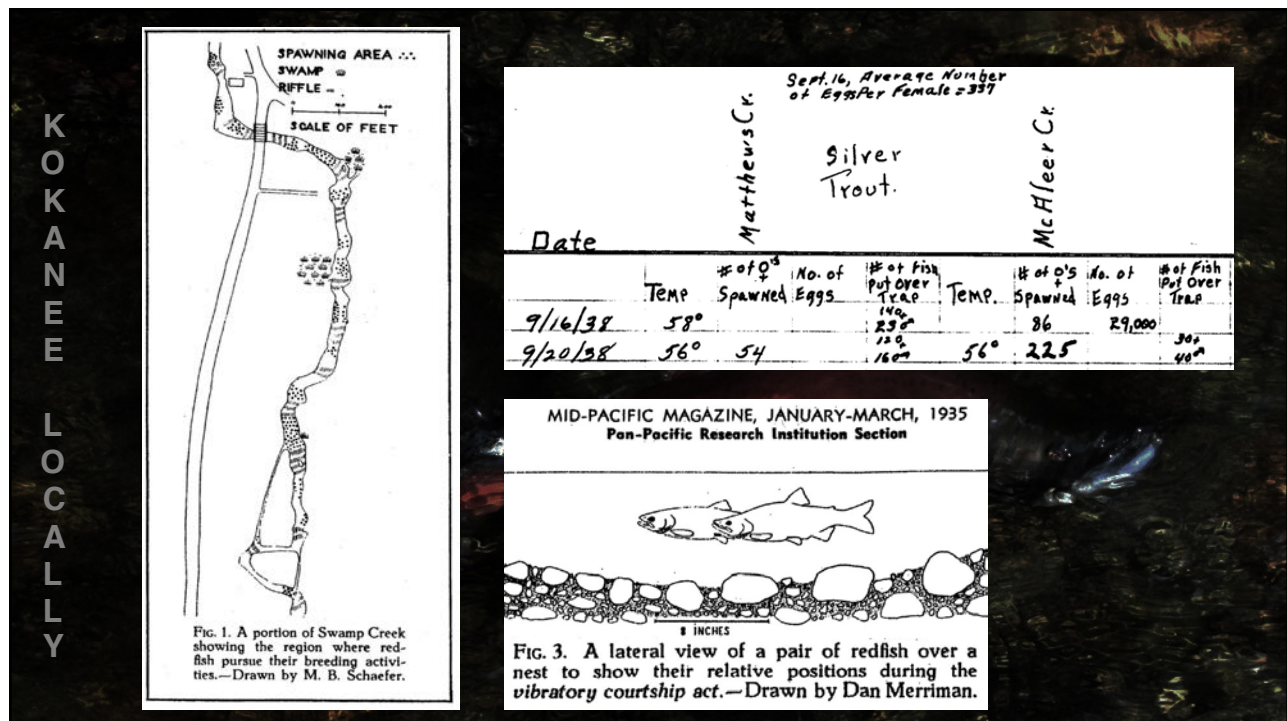 KOKANEE LOCALLY
SPAWNING AREA
SWAMP
RIFFLE
SCALE OF FEET
FIG. 1. A portion of Swamp Creek
showing the region where red-
fish pursue their breeding activi-
ties.—Drawn by M. B. Schaefer.
Sept. 16, Average Number
of Eggs Per Female = 337
Matthews Cr.
Silver
Trout.
McAleer Cr.
Date
Temp
# of ♀'s
Spawned
No. of
Eggs
# of Fish
Put Over
Trap
Temp.
# of ♀'s
Spawned
No. of
Eggs
# of Fish
Put Over
Trap
9/16/38 58° 140♀ 230♂ 86 29,000
9/20/38 56° 54 120♀ 160♂ 56° 225 30♀ 40♂
MID-PACIFIC MAGAZINE, JANUARY-MARCH, 1935
Pan-Pacific Research Institution Section
8 INCHES
FIG. 3. A lateral view of a pair of redfish over a
nest to show their relative positions during the
vibratory courtship act.—Drawn by Dan Merriman.